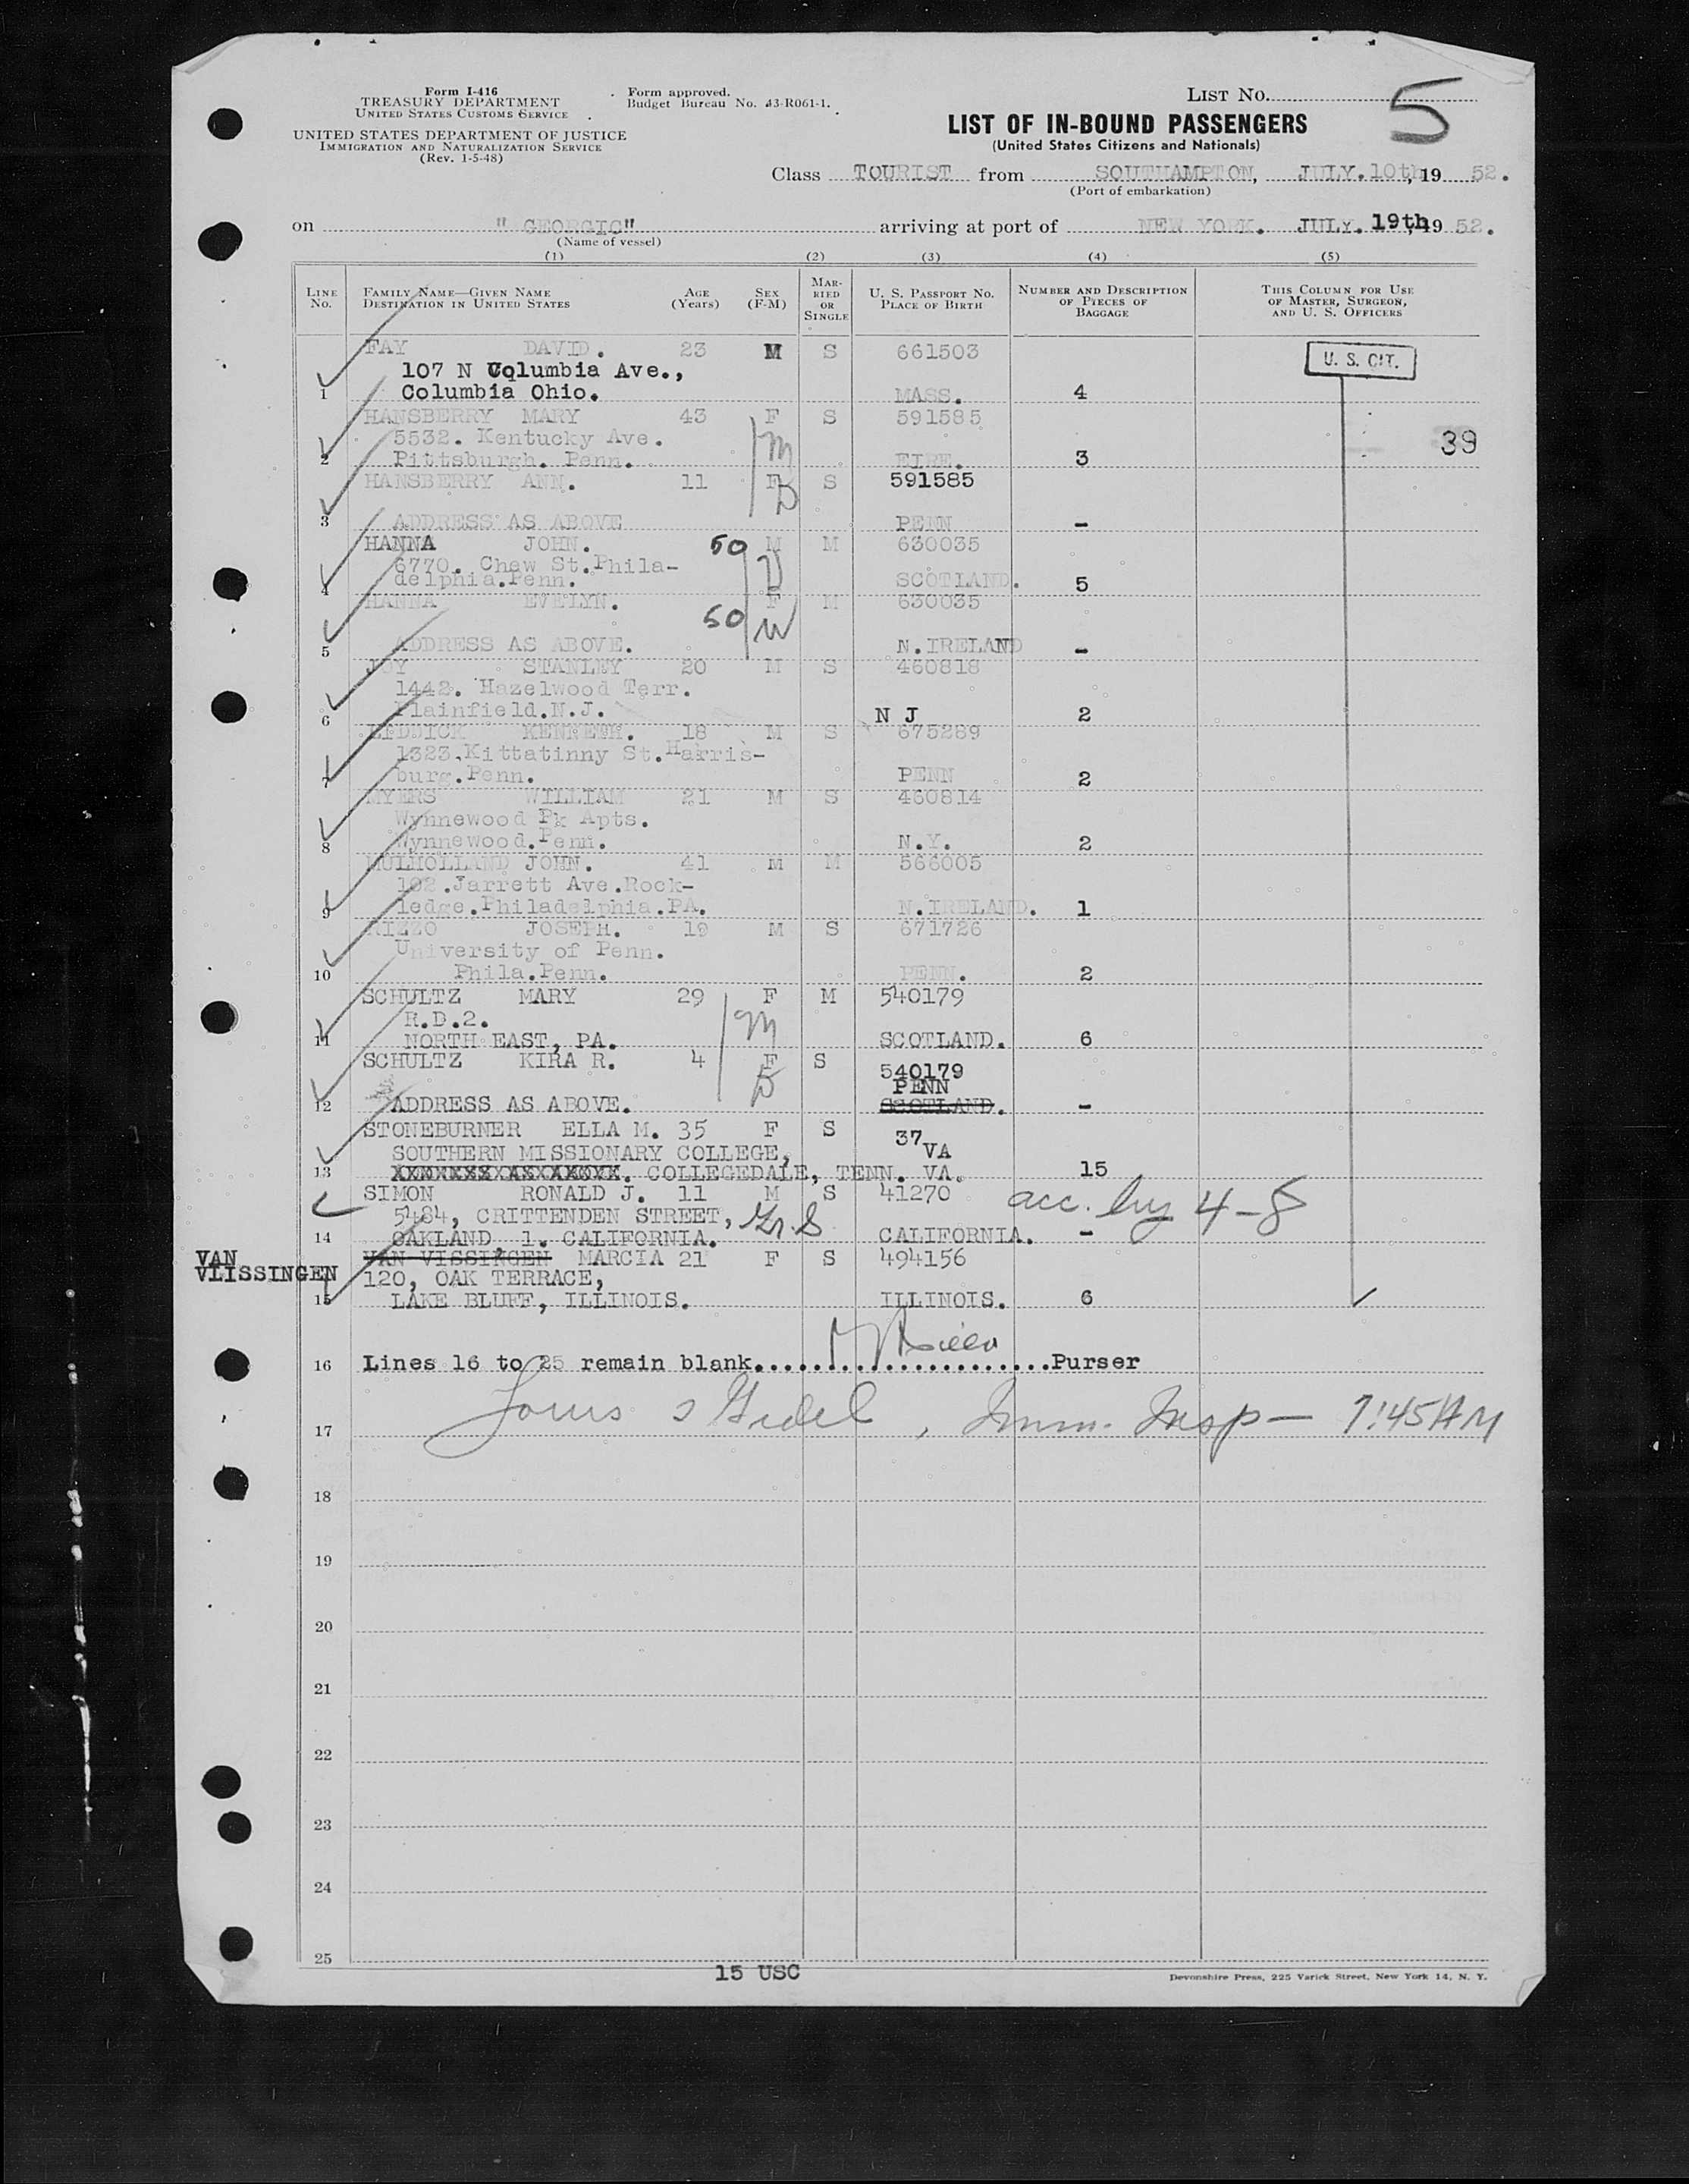 Form I-416
TREASURY DEPARTMENT
UNITED STATES CUSTOMS SERVICE
UNITED STATES DEPARTMENT OF JUSTICE
IMMIGRATION AND NATURALIZATION SERVICE
(Rev. 1-5-48)
Form approved.
Budget Bureau No. 43-R061-1.
LIST NO. 5
LIST OF IN-BOUND PASSENGERS
(United States Citizens and Nationals)
Class TOURIST from SOUTHAMPTON, JULY.10th, 19 52.
(Port of embarkation)
on "GEORGIC" arriving at port of NEW YORK. JULY. 19th, 19 52.
(Name of vessel)
(1) (2) (3) (4) (5)
LINE NO. FAMILY NAME—GIVEN NAME DESTINATION IN UNITED STATES AGE (Years) SEX (F-M) MARRIED OR SINGLE U. S. PASSPORT NO. PLACE OF BIRTH NUMBER AND DESCRIPTION OF PIECES OF BAGGAGE THIS COLUMN FOR USE OF MASTER, SURGEON, AND U. S. OFFICERS
FAY DAVID. 23 M S 661503 U. S. CIT.
107 N Columbia Ave.,
1 Columbia Ohio. MASS. 4
HANSBERRY MARY 43 F S 591585
5532. Kentucky Ave. m 39
2 Pittsburgh. Penn. EIRE. 3
HANSBERRY ANN. 11 F S 591585
D
3 ADDRESS AS ABOVE PENN -
HANNA JOHN. 50 M M 630035
6770. Chew St.Phila-
4 delphia.Penn. SCOTLAND. 5
HANNA EVELYN. 50 F M 630035
W
5 ADDRESS AS ABOVE. N.IRELAND -
JOY STANLEY 20 M S 460818
1442. Hazelwood Terr.
6 Plainfield.N.J. N J 2
KENNETH. 18 M S 675289
1323.Kittatinny St.Harris-
7 burg.Penn. PENN 2
MYERS WILLIAM 21 M S 460814
Wynnewood Pk Apts.
8 Wynnewood.Penn. N.Y. 2
MULHOLLAND JOHN. 41 M M 566005
102.Jarrett Ave.Rock-
9 ledge.Philadelphia.PA. N.IRELAND. 1
RIZZO JOSEPH. 19 M S 671726
University of Penn.
10 Phila.Penn. PENN. 2
SCHULTZ MARY 29 F M 540179
R.D.2. m
11 NORTH EAST, PA. SCOTLAND. 6
SCHULTZ KIRA R. 4 F S 540179
D PENN
12 ADDRESS AS ABOVE. SCOTLAND. -
STONEBURNER ELLA M. 35 F S 37
SOUTHERN MISSIONARY COLLEGE, VA
13 COLLEGEDALE, TENN. VA. 15
SIMON RONALD J. 11 M S 41270 acc. by 4-8
5484, CRITTENDEN STREET,
14 OAKLAND, 1. CALIFORNIA. CALIFORNIA. -
VAN VLISSINGEN VAN VISSINGEN MARCIA 21 F S 494156
120, OAK TERRACE,
15 LAKE BLUFF, ILLINOIS. ILLINOIS. 6
16 Lines 16 to 25 remain blank......................Purser
17 Imm. Insp— 7:45AM
18
19
20
21
22
23
24
25
15 USC
Devonshire Press, 225 Varick Street, New York 14, N. Y.